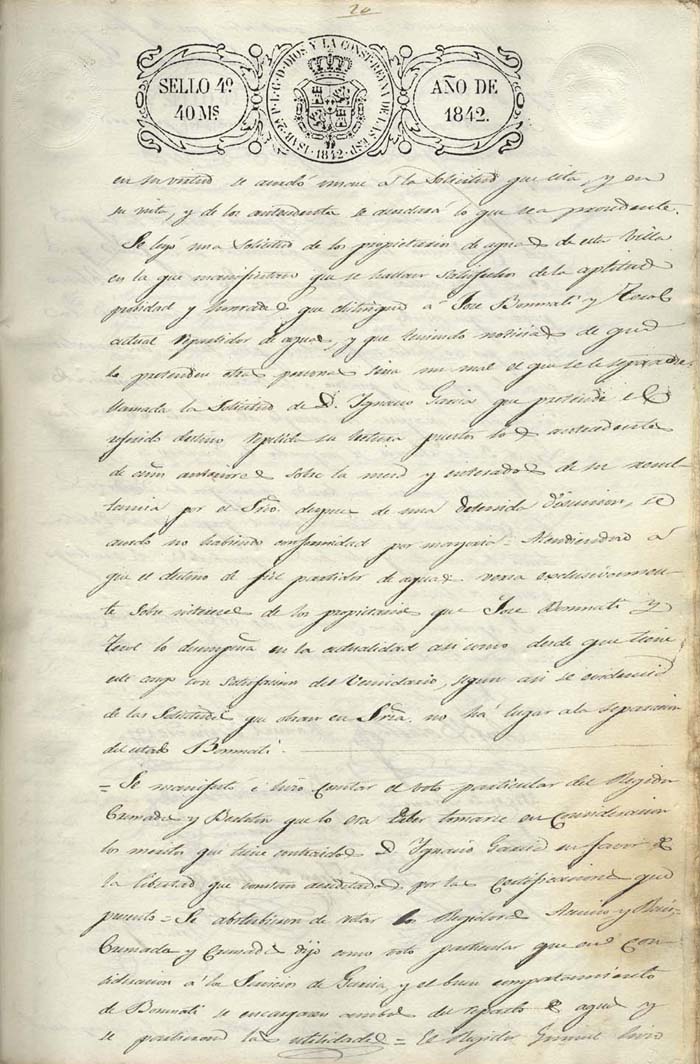 20
SELLO 4º
40 Ms
ISAB. 2ª P. L. G. D. DIOS Y LA CONST. REYNA DE LAS ESP.
1842
AÑO DE
1842.
en su virtud se acordó unirse á la Solicitud que cita, y en
su vista, y de los antecedentes se acordará lo que sea procedente.
Se leyo una Solicitud de los propietarios de aguas de esta Villa
en la que manifiestan que se hallan satisfechos de la aptitud
probidad y honradez que distingue á Jose Bonmati y Terol
actual repartidor de aguas, y que teniendo noticias de que
lo pretenden otras personas
llamada la Solicitud de D. Ignacio Garcia que pretende el
referido destino repetida su lectura puestos los antecedentes
de años anteriores sobre la mesa y enterados de su resul-
tancia por el Srio. despues de una detenida discusion, se
acordó no habiendo conformidad por mayoria = Atendiendo á
que el destino de fiel partidor de aguas versa exclusivamen-
te sobre intereses de los propietarios que Jose Bonmati y
Terol lo desempeña en la actualidad asi como desde que tiene
este cargo con satisfaccion del Vecindario, segun asi se evidencia
de las Solicitudes que obran en Sria. no há lugar a la separacion
del citado Bonmati.
= Se manifestó é hizo constar el voto particular del Regidor
Cremades y que lo era deber tomarse en consideracion
los meritos que tiene contraidos D. Ignacio Garcia en favor de
la libertad que constan acreditados por las Certificaciones que
presentó = Se abstubieron de votar los Regidores y
Cremades y Cremades dijo como voto particular que en con-
sideracion á los Servicios de Garcia, y el buen comportamiento
de Bonmati se encargaran ambos del reparto de aguas y
se partieran las utilidades = El Regidor